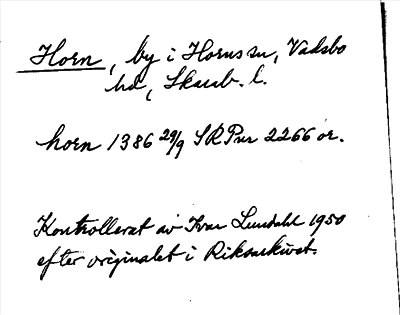 Horn, by i Horns sn, Vadsbo
hd, Skarab. l.
horn 1386 29/9 SRPnr 2266 or.
Kontrollerat av Ivar Lundahl 1950
efter originalet i Riksarkivet.